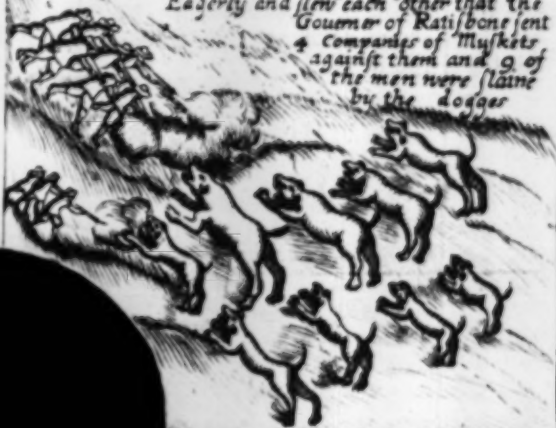 Eagerly and slew each other that the
Gouerner of Ratisbone sent
4 Companies of Muskets
against them and 9 of
the men were slaine
by the dogges